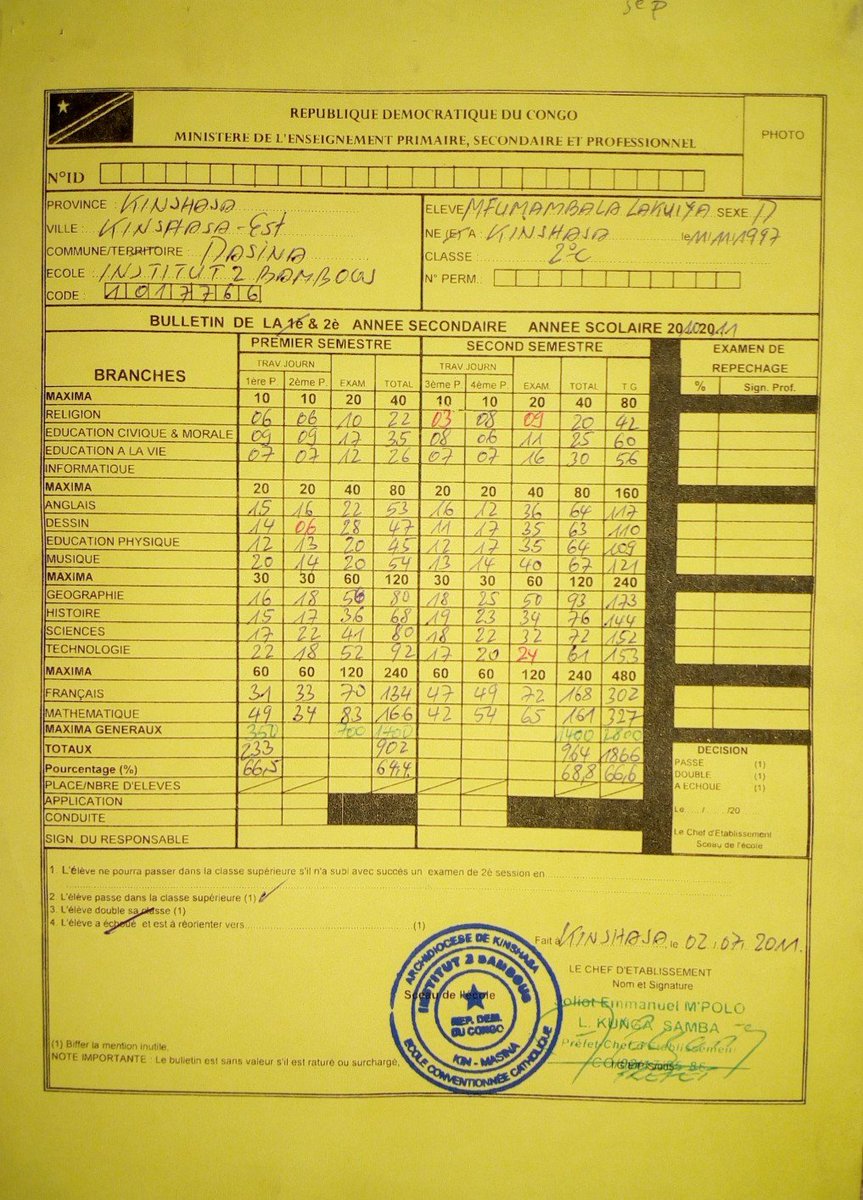 sep
REPUBLIQUE DEMOCRATIQUE DU CONGO
MINISTERE DE L'ENSEIGNEMENT PRIMAIRE, SECONDAIRE ET PROFESSIONNEL
PHOTO
N°ID
PROVINCE : KINSHASA
VILLE : KINSHASA-Est
COMMUNE/TERRITOIRE : MASINA
ECOLE : INSTITUT 2 BAMBOUS
CODE : 1017766
ELEVE MFUMAMBALA LAKUIYA SEXE M
NE (E) A : KINSHASA le 11/11/1997
CLASSE : 2°C
N° PERM.:
BULLETIN DE LA 1è & 2è ANNEE SECONDAIRE ANNEE SCOLAIRE 2010 2011
BRANCHES PREMIER SEMESTRE SECOND SEMESTRE EXAMEN DE REPECHAGE
TRAV JOURN TRAV JOURN
1ère P. 2ème P. EXAM. TOTAL 3ème P 4ème P. EXAM. TOTAL T G % Sign. Prof.
MAXIMA 10 10 20 40 10 10 20 40 80
RELIGION 06 06 10 22 03 08 09 20 42
EDUCATION CIVIQUE & MORALE 09 09 17 35 08 06 11 25 60
EDUCATION A LA VIE 07 07 12 26 07 07 16 30 56
INFORMATIQUE
MAXIMA 20 20 40 80 20 20 40 80 160
ANGLAIS 15 16 22 53 16 12 36 64 117
DESSIN 14 06 28 47 11 17 35 63 110
EDUCATION PHYSIQUE 12 13 20 45 12 17 35 64 109
MUSIQUE 20 14 20 54 13 14 40 67 121
MAXIMA 30 30 60 120 30 30 60 120 240
GEOGRAPHIE 16 18 80 18 25 50 93 173
HISTOIRE 15 17 36 68 19 23 34 76 144
SCIENCES 17 22 41 80 18 22 32 72 152
TECHNOLOGIE 22 18 52 92 17 20 24 61 153
MAXIMA 60 60 120 240 60 60 120 240 480
FRANÇAIS 31 33 70 134 47 49 72 168 302
MATHEMATIQUE 49 34 83 166 42 54 65 161 327
MAXIMA GENERAUX 350 700 1400 1400 2800
TOTAUX 233 902 964 1866
Pourcentage (%) 66,5 64,4 68,8 66,6
PLACE/NBRE D'ELEVES
APPLICATION
CONDUITE
SIGN. DU RESPONSABLE
DECISION
PASSE (1)
DOUBLE (1)
A ECHOUE (1)
Le..../......./20
Le Chef d'Etablissement
Sceau de l'école
1 L'élève ne pourra passer dans la classe supérieure s'il n'a subi avec succès un examen de 2è session en
2 L'élève passe dans la classe supérieure (1)
3. L'élève double sa classe (1)
4. L'élève a échoué et est à réorienter vers (1)
Fait à KINSHASA, le 02/07/2011.
LE CHEF D'ETABLISSEMENT
Nom et Signature
Sceau de l'école
ARCHIDIOCESE DE KINSHASA
INSTITUT 2 BAMBOUS
REP. DEM. DU CONGO
KIN - MASINA
ECOLE CONVENTIONNEE CATHOLIQUE
Joliot Emmanuel M'POLO
L. KUNGA SAMBA
Préfet Chef d'Etablissement
(1) Biffer la mention inutile.
NOTE IMPORTANTE : Le bulletin est sans valeur s'il est raturé ou surchargé.